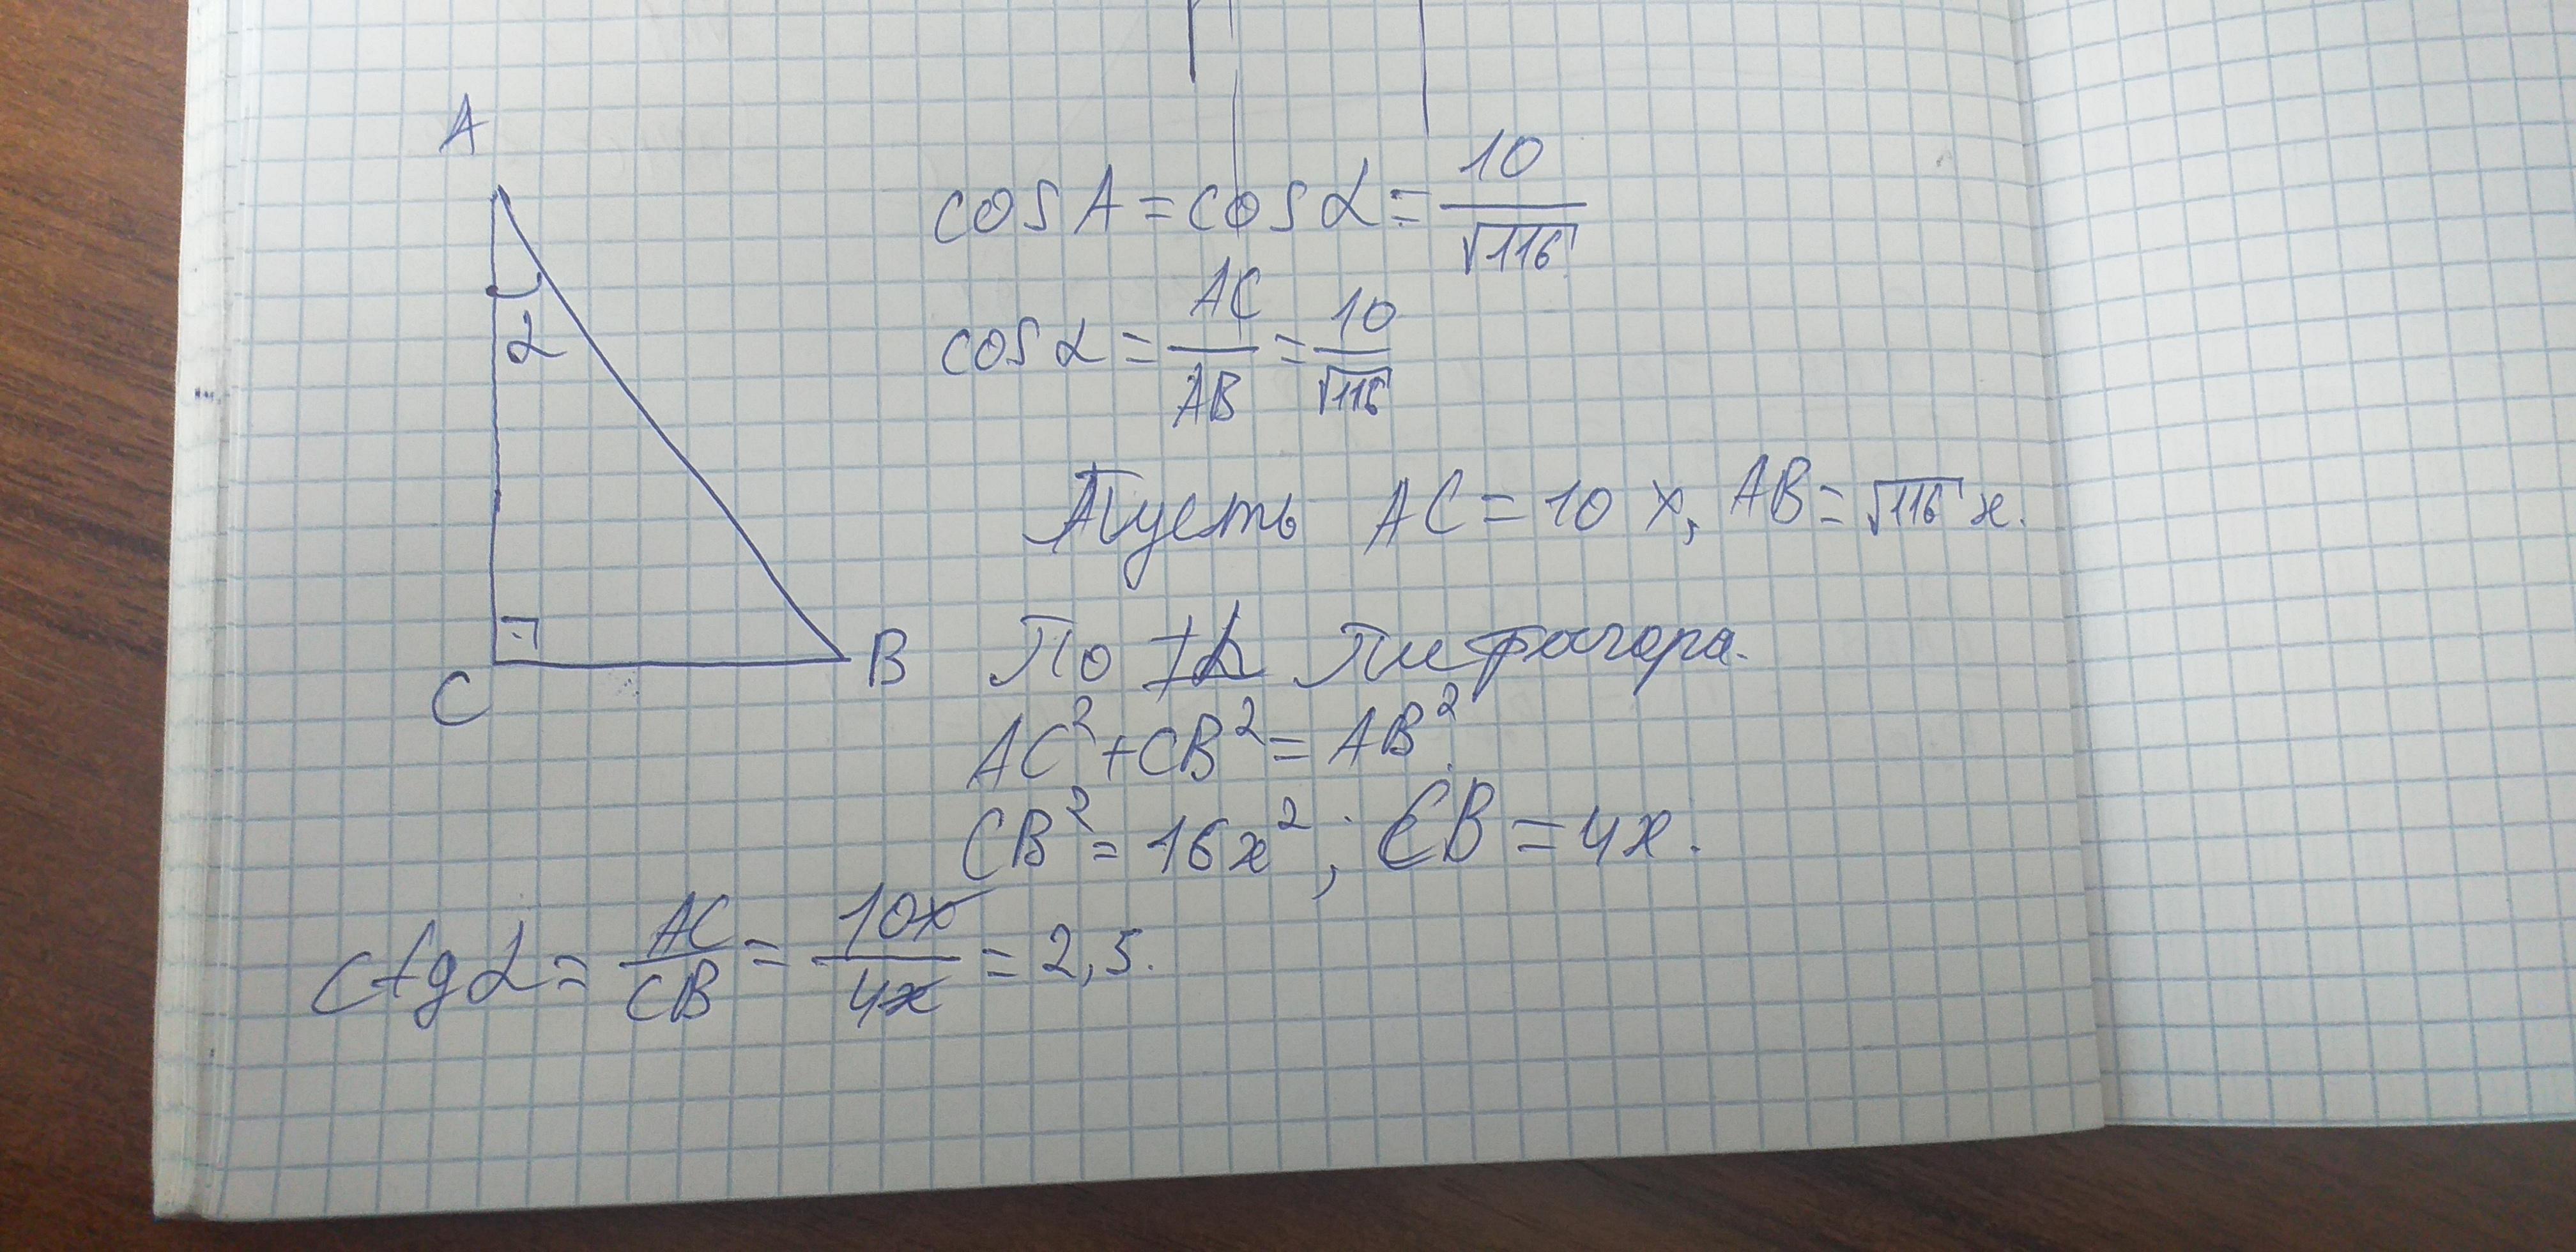 A
cos A = cos α = 10/√116
cos α = AC/AB = 10/√116
α
Пусть AC = 10 x, AB = √116 x.
C
B
По Th Пифагора.
AC² + CB² = AB².
CB² = 16x²; CB = 4x.
ctg α = AC/CB = 10x/4x = 2,5.